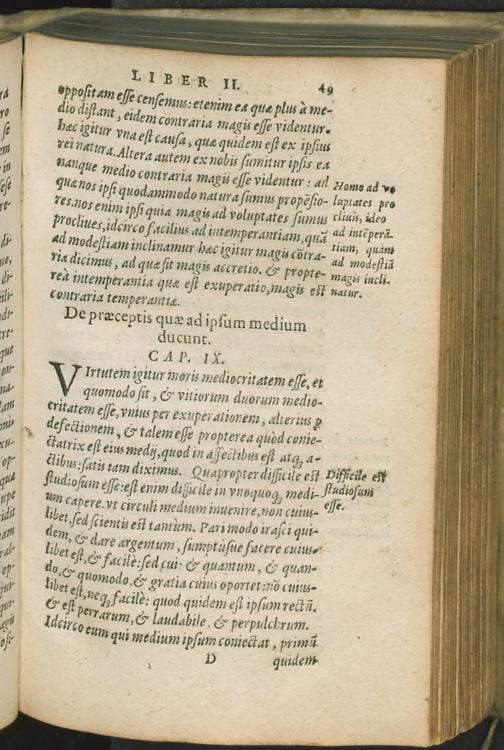 LIBER II. 49
oppositam esse censemus: etenim ea quæ plus à me-
dio distant, eidem contraria magis esse videntur.
hæc igitur vna est causa, quæ quidem est ex ipsius
rei natura. Altera autem ex nobis sumitur ipsis ea
nanque medio contraria magis esse videntur: ad
quæ nos ipsi quodammodo natura sumus propẽsio-
res. nos enim ipsi quia magis ad voluptates sumus
procliues, idcirco facilius ad intemperantiam, quã
ad modestiam inclinamur hæc igitur magis cõtra-
ria dicimus, ad quæ sit magis accretio. & propte-
reà intemperantia quæ est exuperatio, magis est
contraria temperantiæ.
Homo ad vo
luptates pro
cliuis, ideo
ad intẽperã-
tiam, quàm
ad modestiã
magis incli-
natur.
De præceptis quæ ad ipsum medium
ducunt.
CAP. IX.
VIrtutem igitur moris mediocritatem esse, et
quomodo sit, & vitiorum duorum medio-
critatem esse, vnius per exuperationem, alterius ꝑ
defectionem, & talem esse propterea quòd conie-
ctatrix est eius medij, quod in affectibus est atq; a-
ctibus: satis tam diximus. Quapropter difficile est
studiosum esse: est enim difficile in vnoquoq; medi-
um capere. vt circuli medium inuenire, non cuius-
libet, sed scientis est tantùm. Pari modo irasci qui-
dem, & dare argentum, sumptúsue facere cuius-
libet est, & facilè: sed cui: & quantum, & quan-
do, & quomodo, & gratia cuius oportet: nõ cuius-
libet est, neq; facilè: quod quidem est ipsum rectũ.
& est perrarum, & laudabile, & perpulchrum.
Idcirco eum qui medium ipsum coniectat, primũ
Difficile est
studiosum
esse.
D quidem